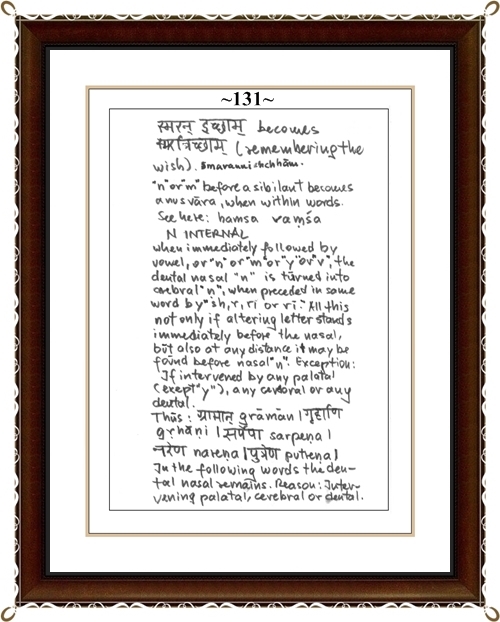 ~131~
स्मरन् इच्छाम् becomes
स्मरन्निच्छाम् (remembering the
wish). Smarannichchhám.
"n" or "m" before a sibilant becomes
anusvāra, when within words.
See here: hamsa vaṃśa
N INTERNAL
when immediately followed by
vowel, or "n" or "m" or "y" or "v", the
dental nasal "n" is turned into
cerebral "n", when preceded in same
word by "sh, r, ri or rī." All this
not only if altering letter stands
immediately before the nasal,
but also at any distance it may be
found before nasal "n". Exception:
If intervened by any palatal
(exept "y"), any cerebral or any
dental.
Thus: ग्रामान् grāmān | गृहाणि
gṛhāṇi | सर्पेण sarpeṇa |
नरेण nareṇa | पुत्रेण putreṇa |
In the following words the den-
tal nasal remains. Reason: Inter-
vening palatal, cerebral or dental.